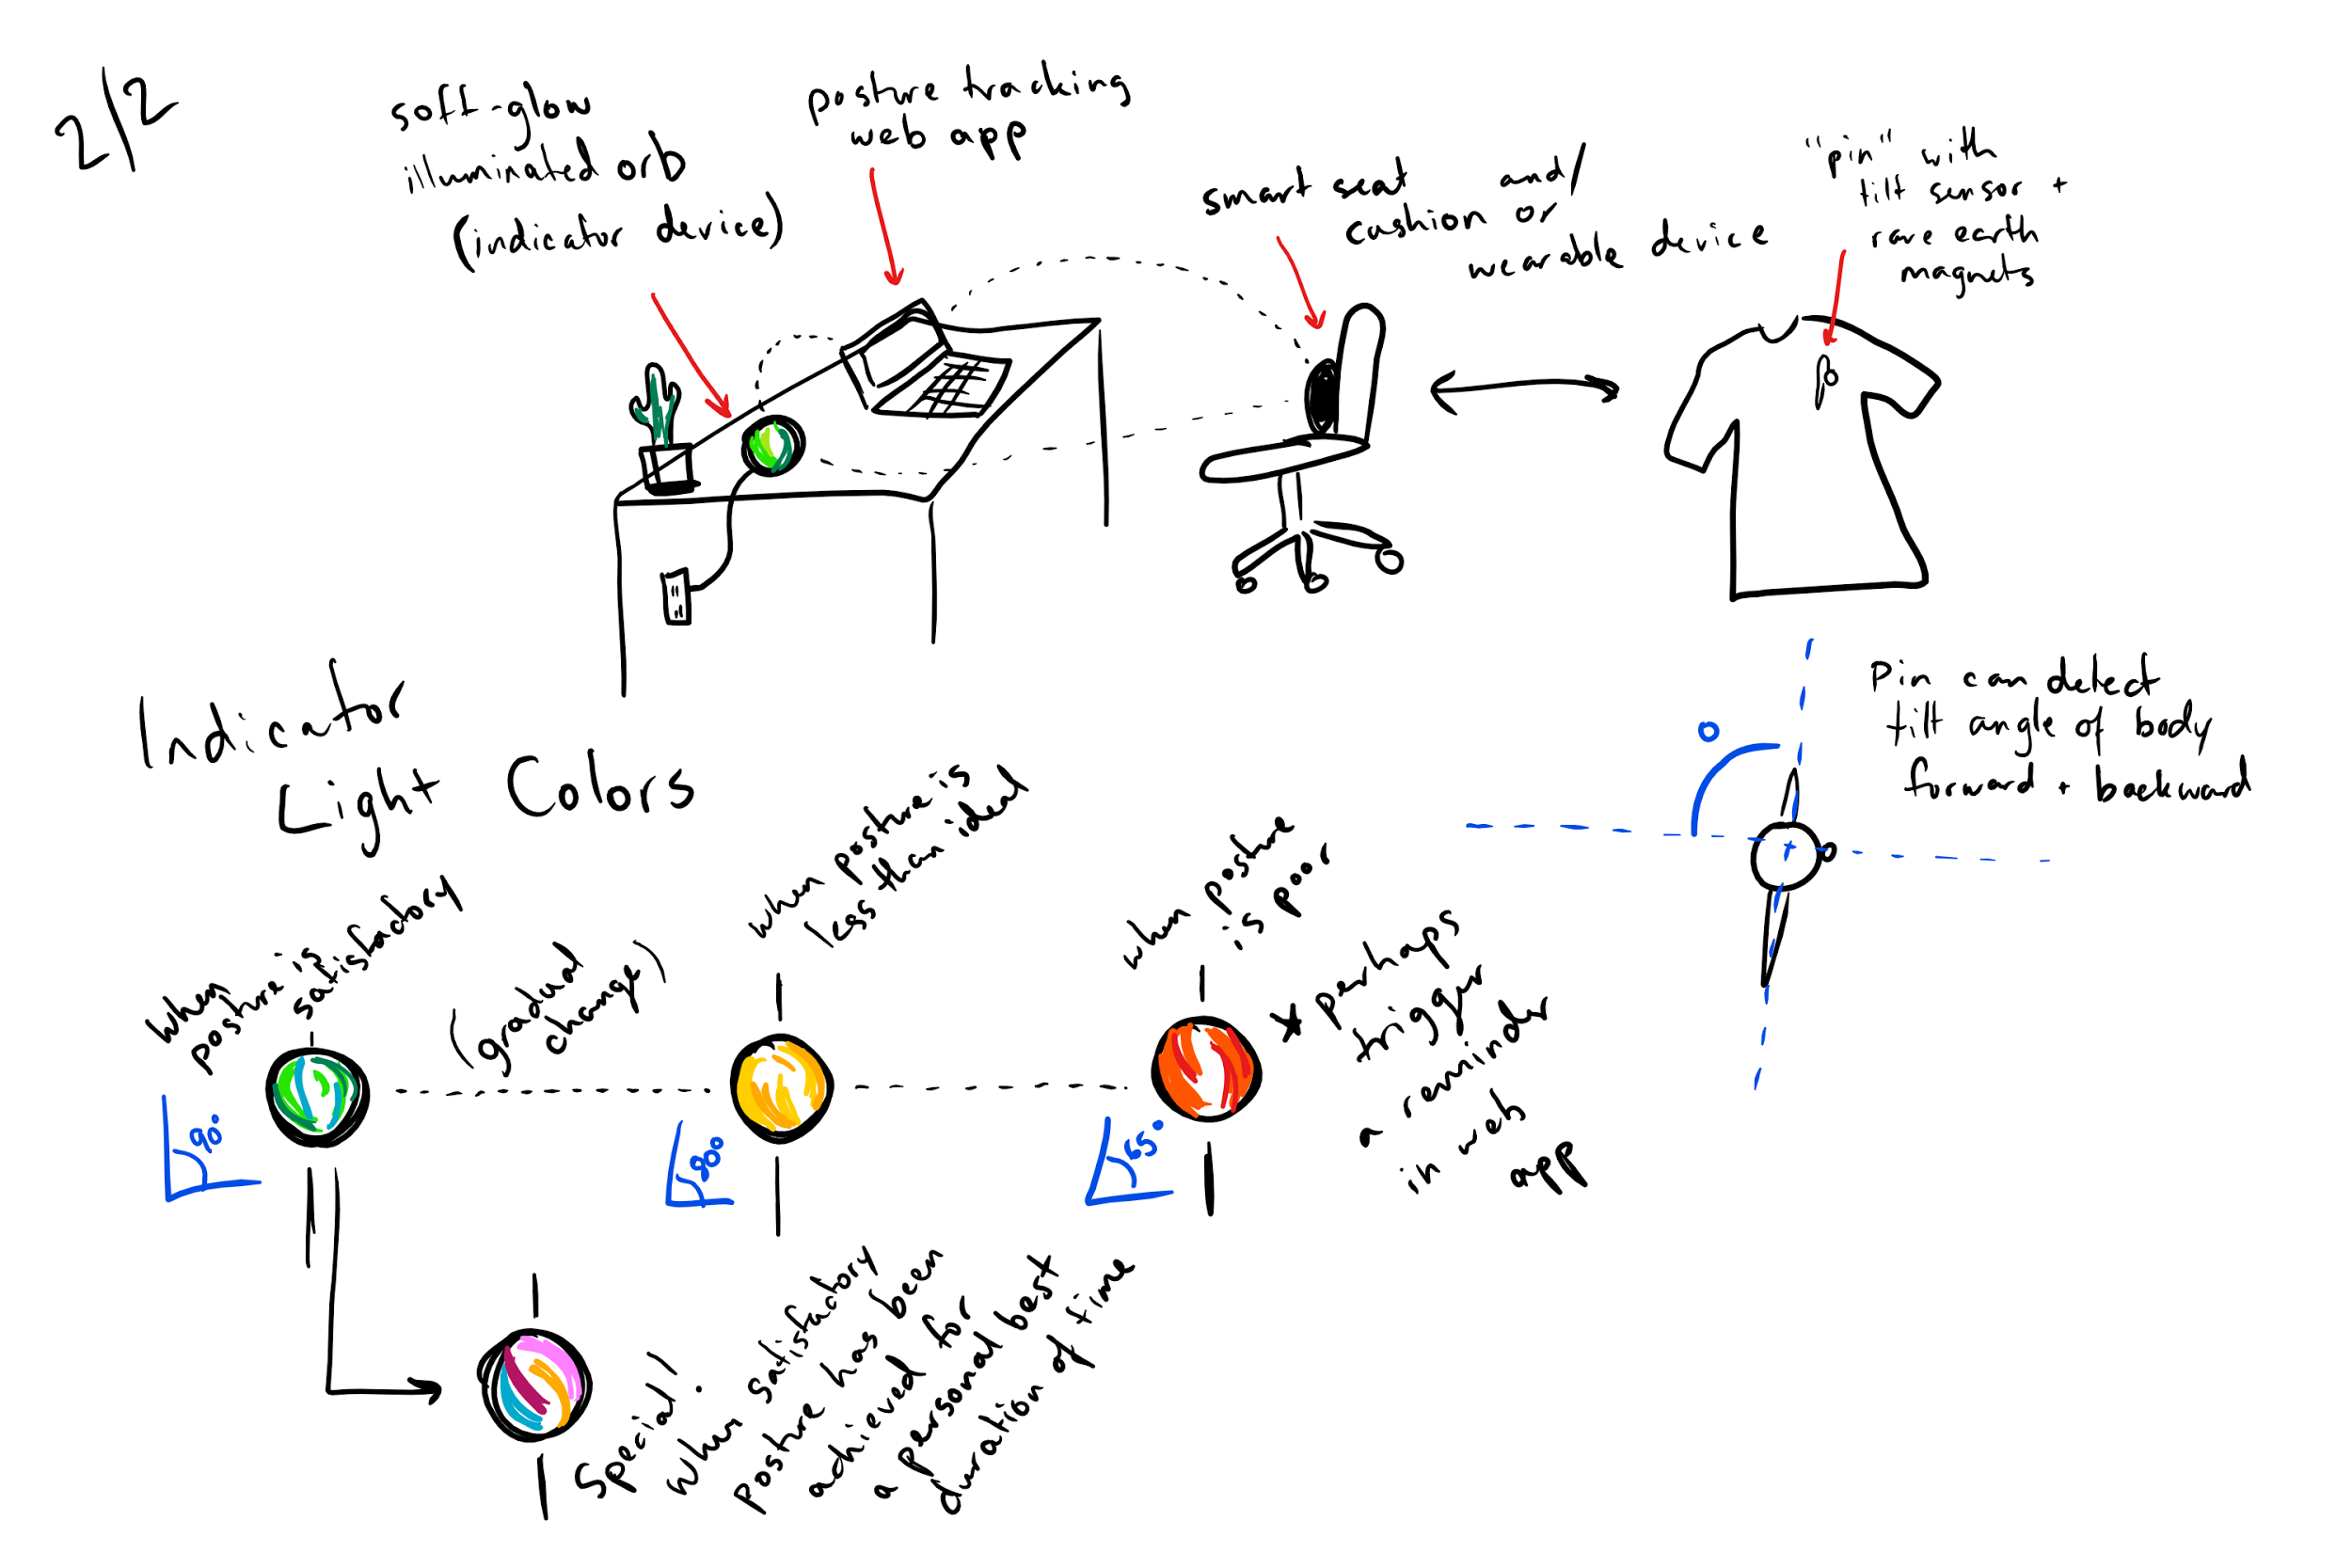 2/2
soft-glow
illuminated orb
(indicator device)
posture tracking
web app
smart seat
cushion and/
or
wearable device
"pin" with
tilt sensor +
rare earth
magnets
Indicator
Light Colors
Pin can detect
tilt angle of body
forward + backward
When
posture is
satisfactory
(gradual
change)
when posture is
less than ideal
when posture
is poor
* perhaps
trigger
a reminder
in web
app
90°
80°
65°
Special!
When satisfactory
posture has been
achieved for
a personal best
duration of time